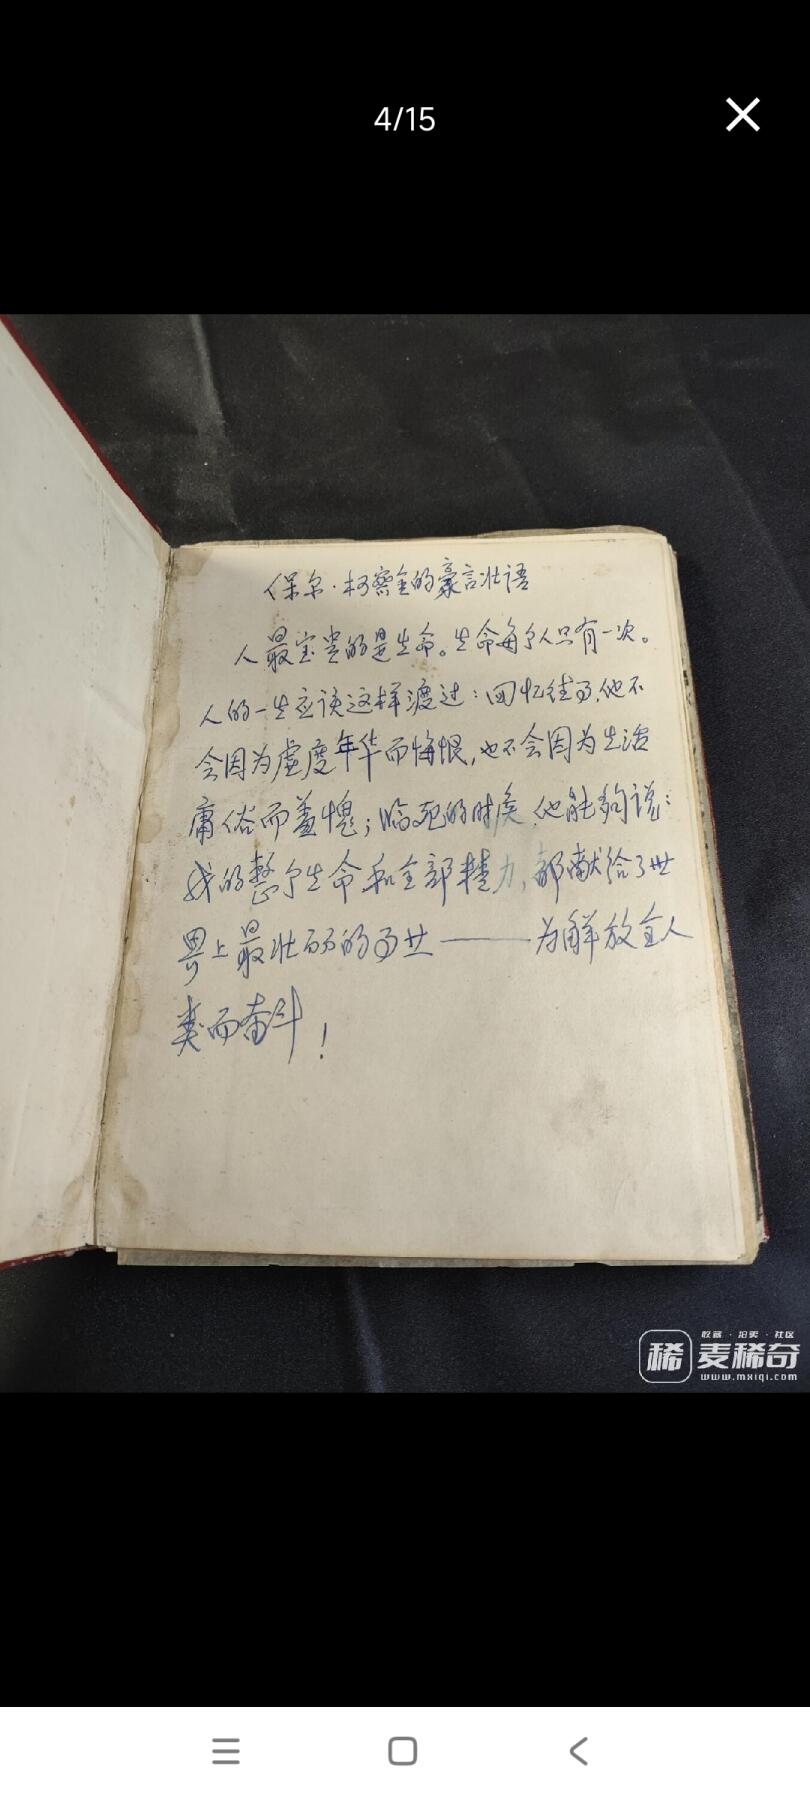 4/15
保尔·柯察金的豪言壮语
人最宝贵的是生命。生命每个人只有一次。
人的一生应该这样渡过：回忆往事，他不
会因为虚度年华而悔恨，也不会因为生活
庸俗而羞愧；临死的时候，他能够说：
我的整个生命和全部精力，都献给了世
界上最壮丽的事业——为解放全人
类而奋斗！
稀 麦稀奇
收藏·拍卖·社区
www.mxiqi.com